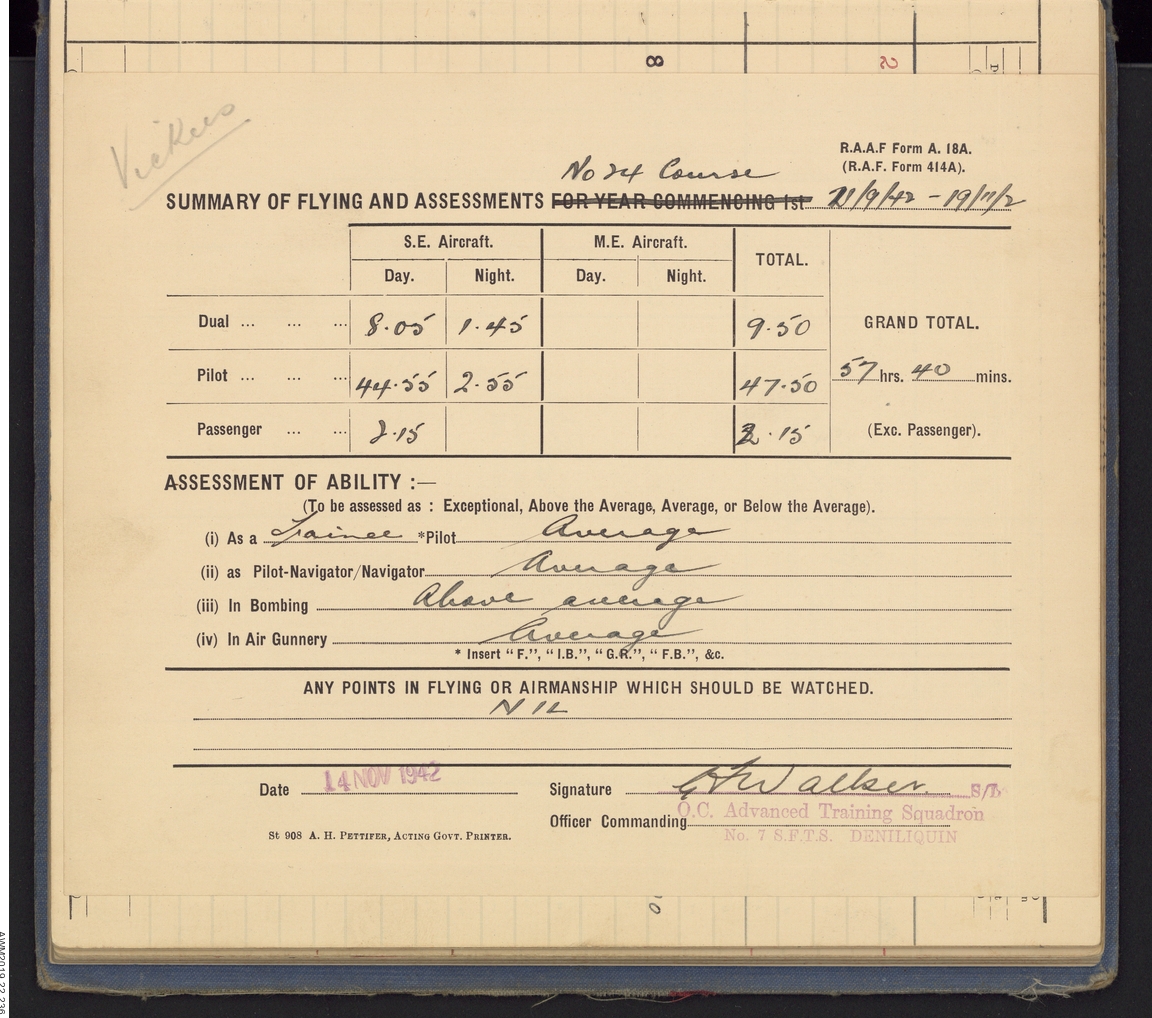 8
5
Vickers
R.A.A.F Form A. 18A.
(R.A.F. Form 414A).
No 24 Course
SUMMARY OF FLYING AND ASSESSMENTS FOR YEAR COMMENCING 1st 21/9/42 - 19/11/2
S.E. Aircraft. M.E. Aircraft. TOTAL.
Day. Night. Day. Night.
Dual ... ... ... 8.05 1.45 9.50 GRAND TOTAL.
Pilot ... ... ... 44.55 2.55 47.50 57 hrs. 40 mins.
Passenger ... ... 2.15 2.15 (Exc. Passenger).
ASSESSMENT OF ABILITY :—
(To be assessed as : Exceptional, Above the Average, Average, or Below the Average).
(i) As a Trainee *Pilot Average
(ii) as Pilot-Navigator/Navigator Average
(iii) In Bombing Above average
(iv) In Air Gunnery Average
* Insert "F.", "I.B.", "G.R.", "F.B.", &c.
ANY POINTS IN FLYING OR AIRMANSHIP WHICH SHOULD BE WATCHED.
NIL
Date 14 NOV 1942 Signature Walker S/L
Officer Commanding O.C. Advanced Training Squadron
No. 7 S.F.T.S. DENILIQUIN
St 908 A. H. PETTIFER, ACTING GOVT. PRINTER.
AWM2019.22.236